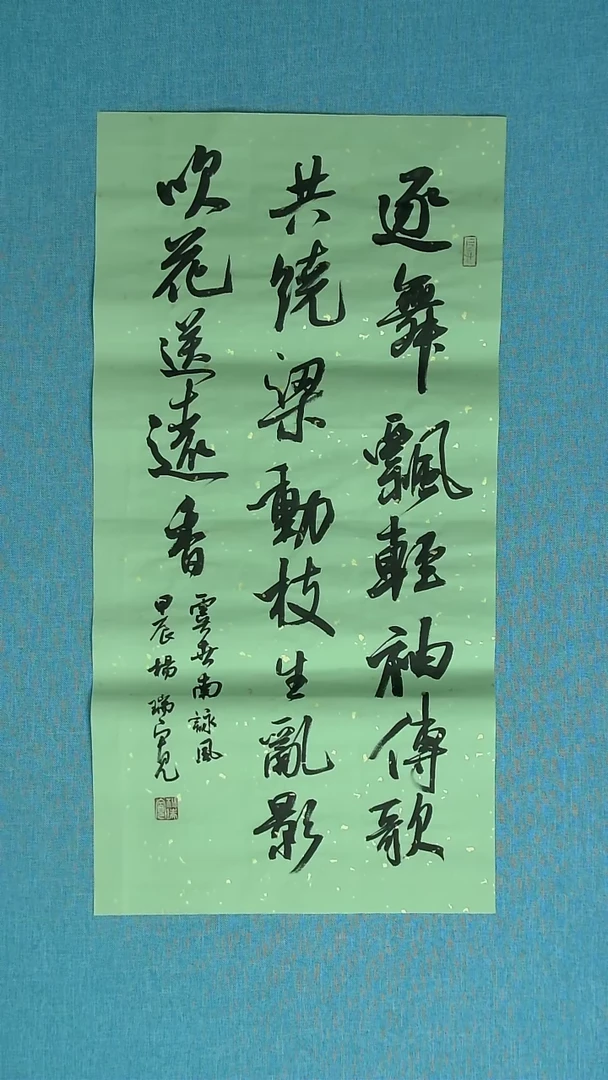 逐舞飄輕袖傳歌
共繞梁動枝生亂影
吹花送遠香
虞世南詠風
甲辰楊瑞寶兄